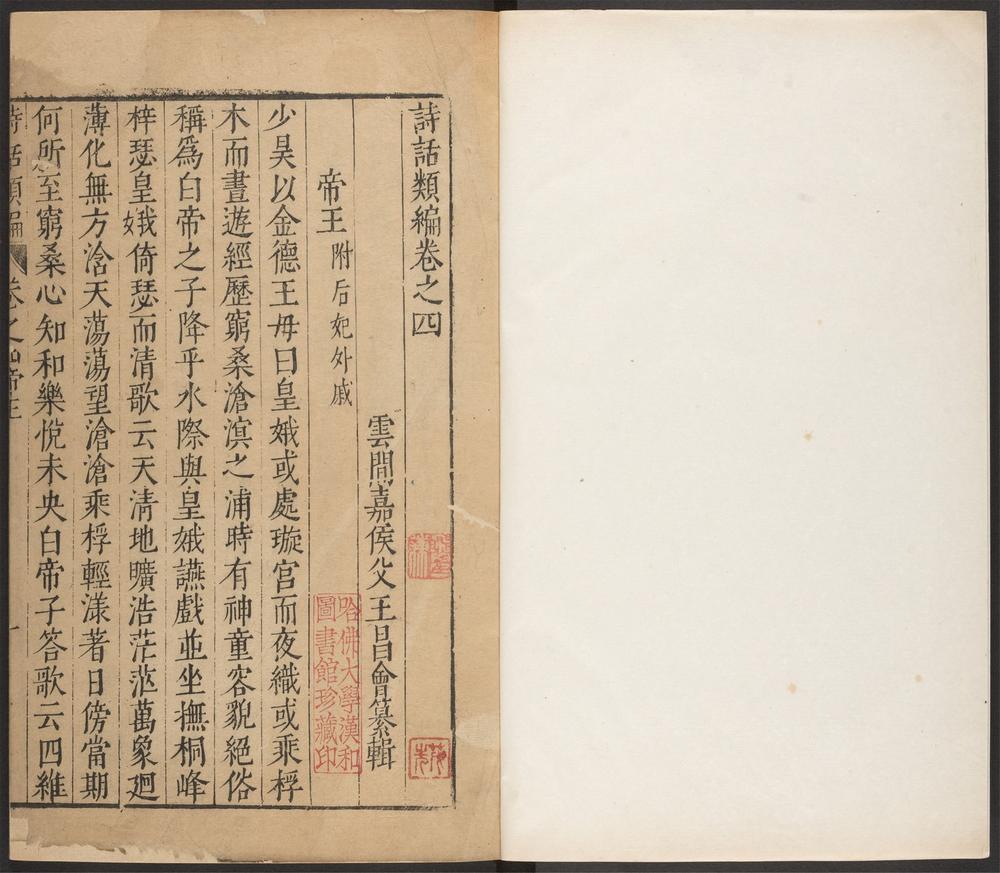 詩話類編卷之四
雲間嘉侯父王昌會纂輯
帝王 附后妃外戚
少昊以金德王母曰皇娥或處璇宮而夜織或乘桴
木而晝遊經歷窮桑滄溟之浦時有神童容貌絕俗
稱爲白帝之子降乎水際與皇娥讌戲並坐撫桐峰
梓瑟皇娥倚瑟而清歌云天清地曠浩茫茫萬象廻
薄化無方浛天蕩蕩望滄滄乘桴輕漾著日傍當期
何所至窮桑心知和樂悅未央白帝子答歌云四維
詩話類編 卷之四帝王 一
哈佛大學漢和
圖書館珍藏印